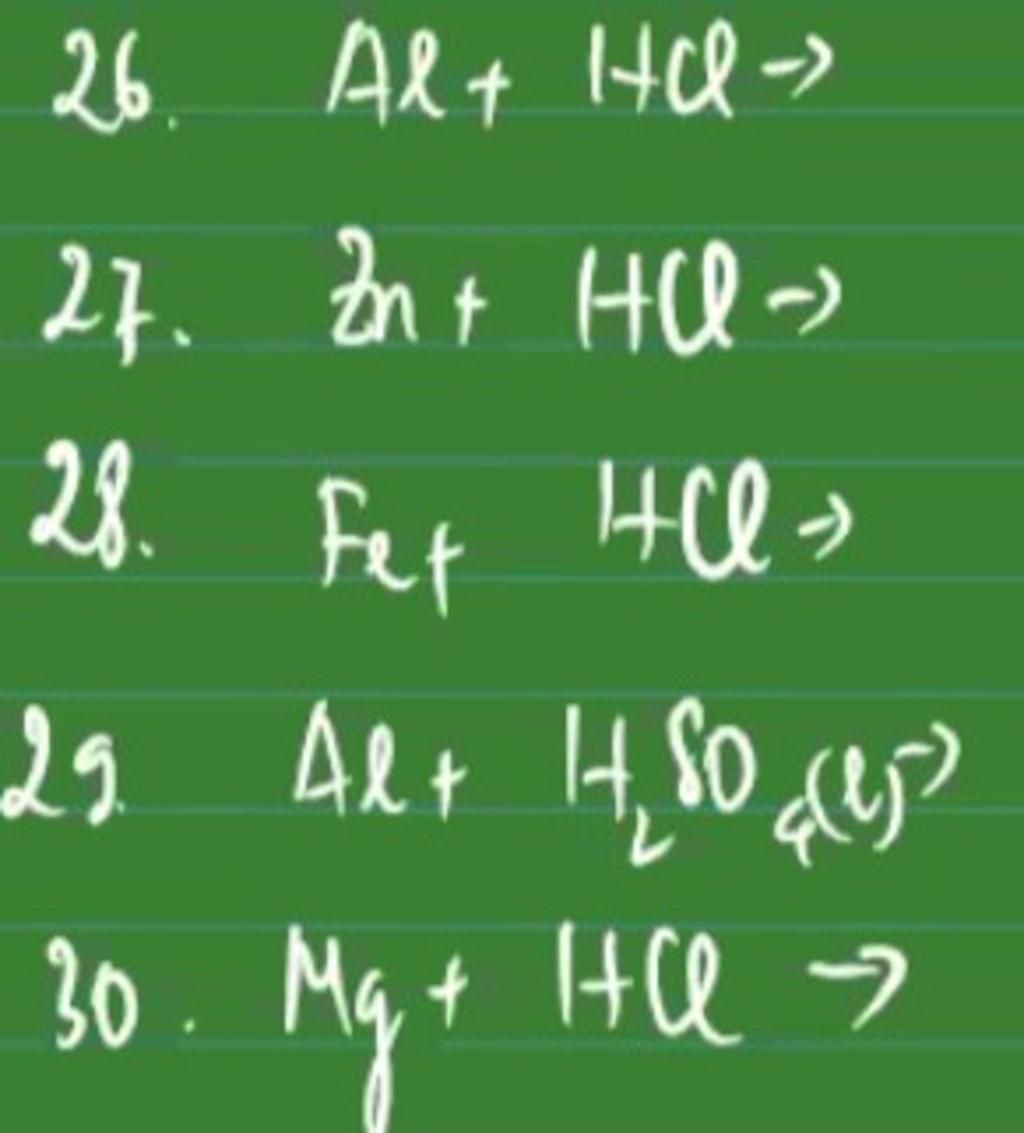 26. Al + HCl →
27. Zn + HCl →
28. Fe + HCl →
29. Al + H₂SO₄(l) →
30. Mg + HCl →